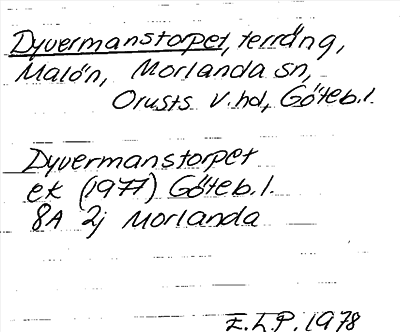 Dyvermanstorpet, terräng,
Malön, Morlanda sn,
Orusts v. hd, Göteb. l.
Dyvermanstorpet
ek (1977) Göteb. l.
8A 2j Morlanda
E.L.P. 1978